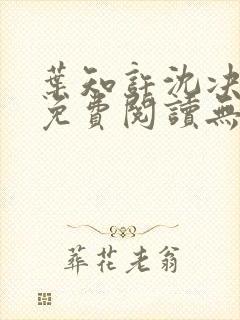 葉知許沈決
免費閱讀無
葬花老翁